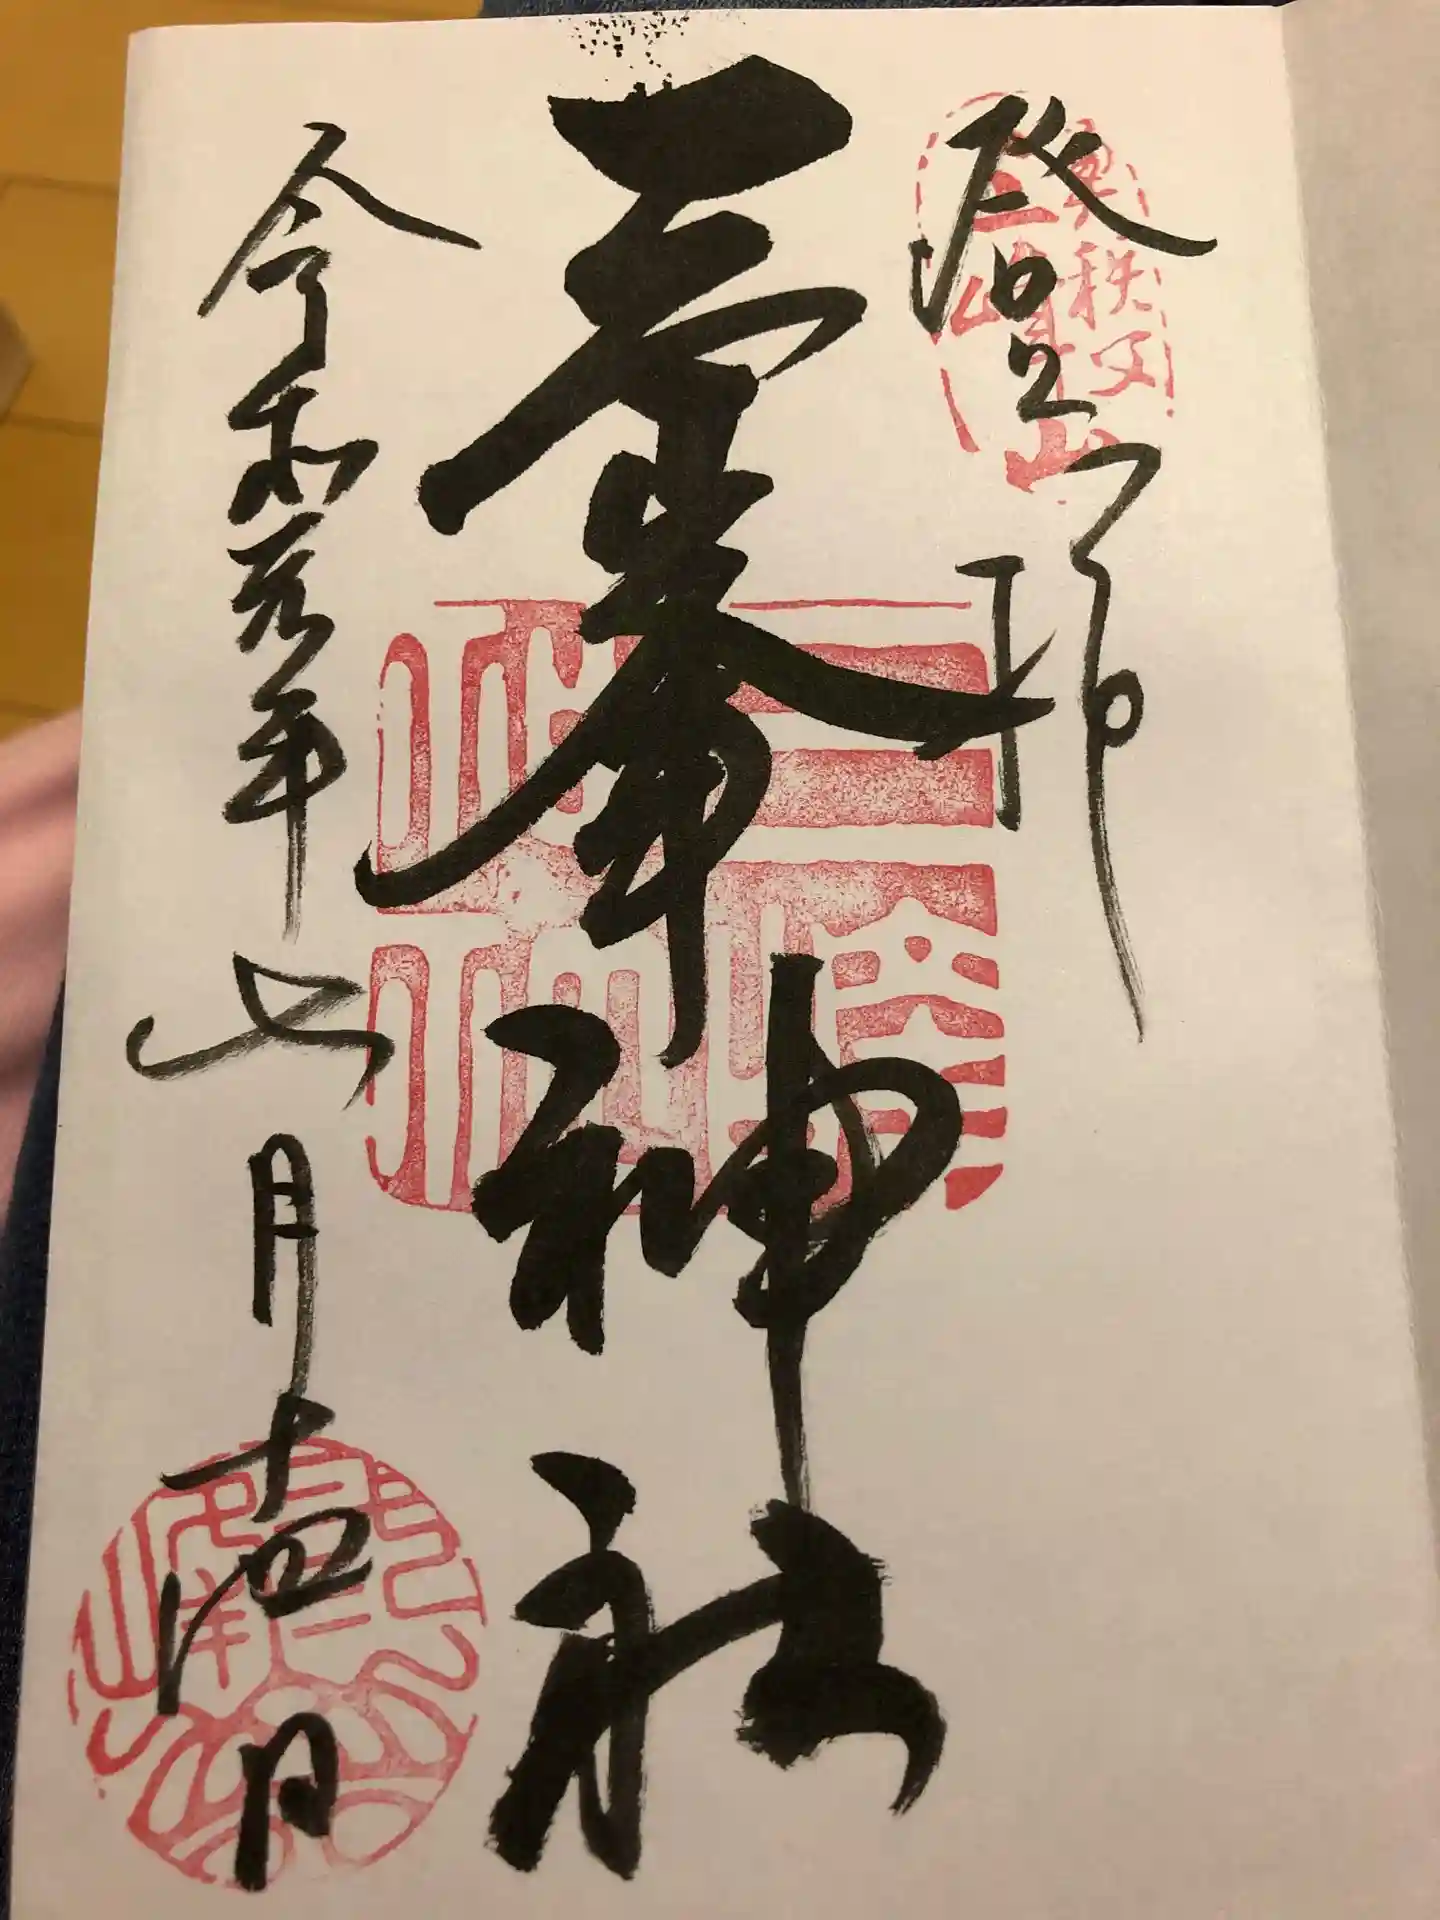 奥秩父
三峰山
登拝
三峯神社
令和元年七月十四日